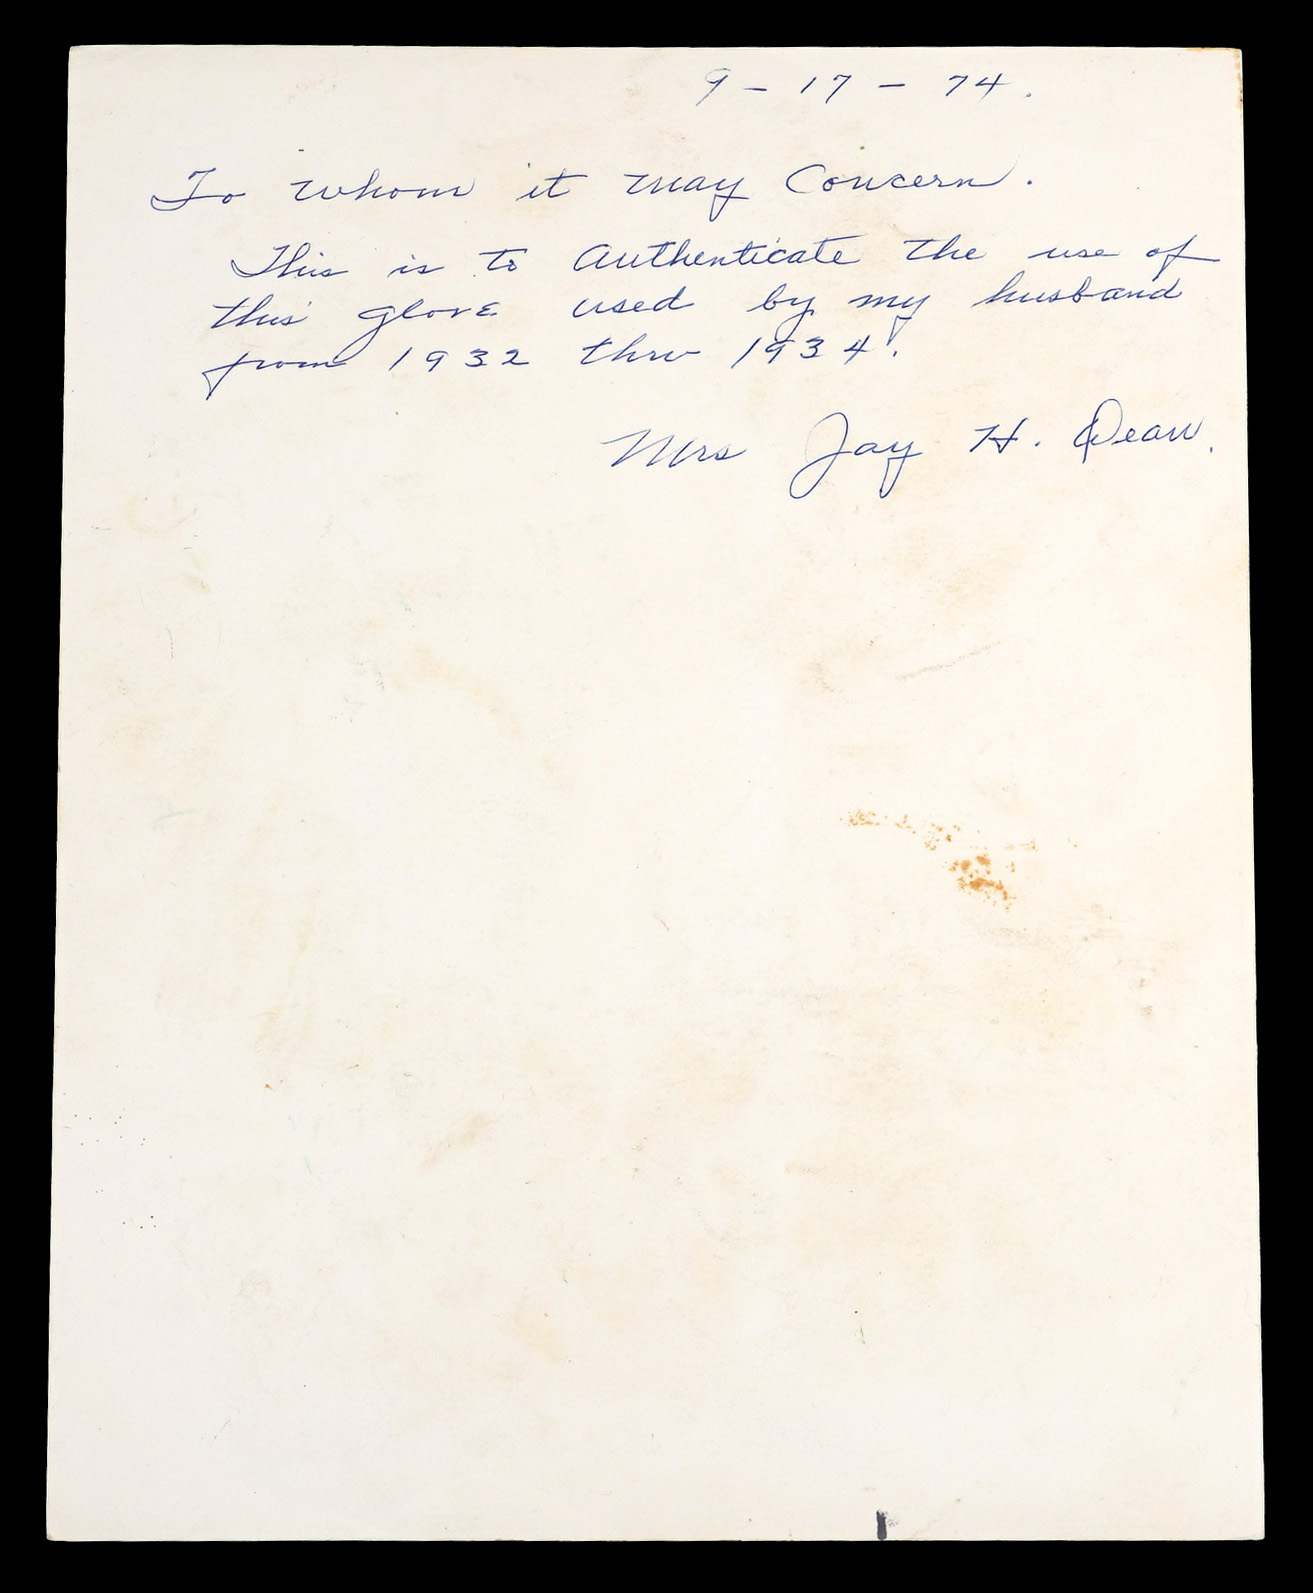 9 - 17 - 74.
To whom it may Concern.
This is to authenticate the use of
this glove used by my husband
from 1932 thru 1934.
Mrs Jay H. Dean.